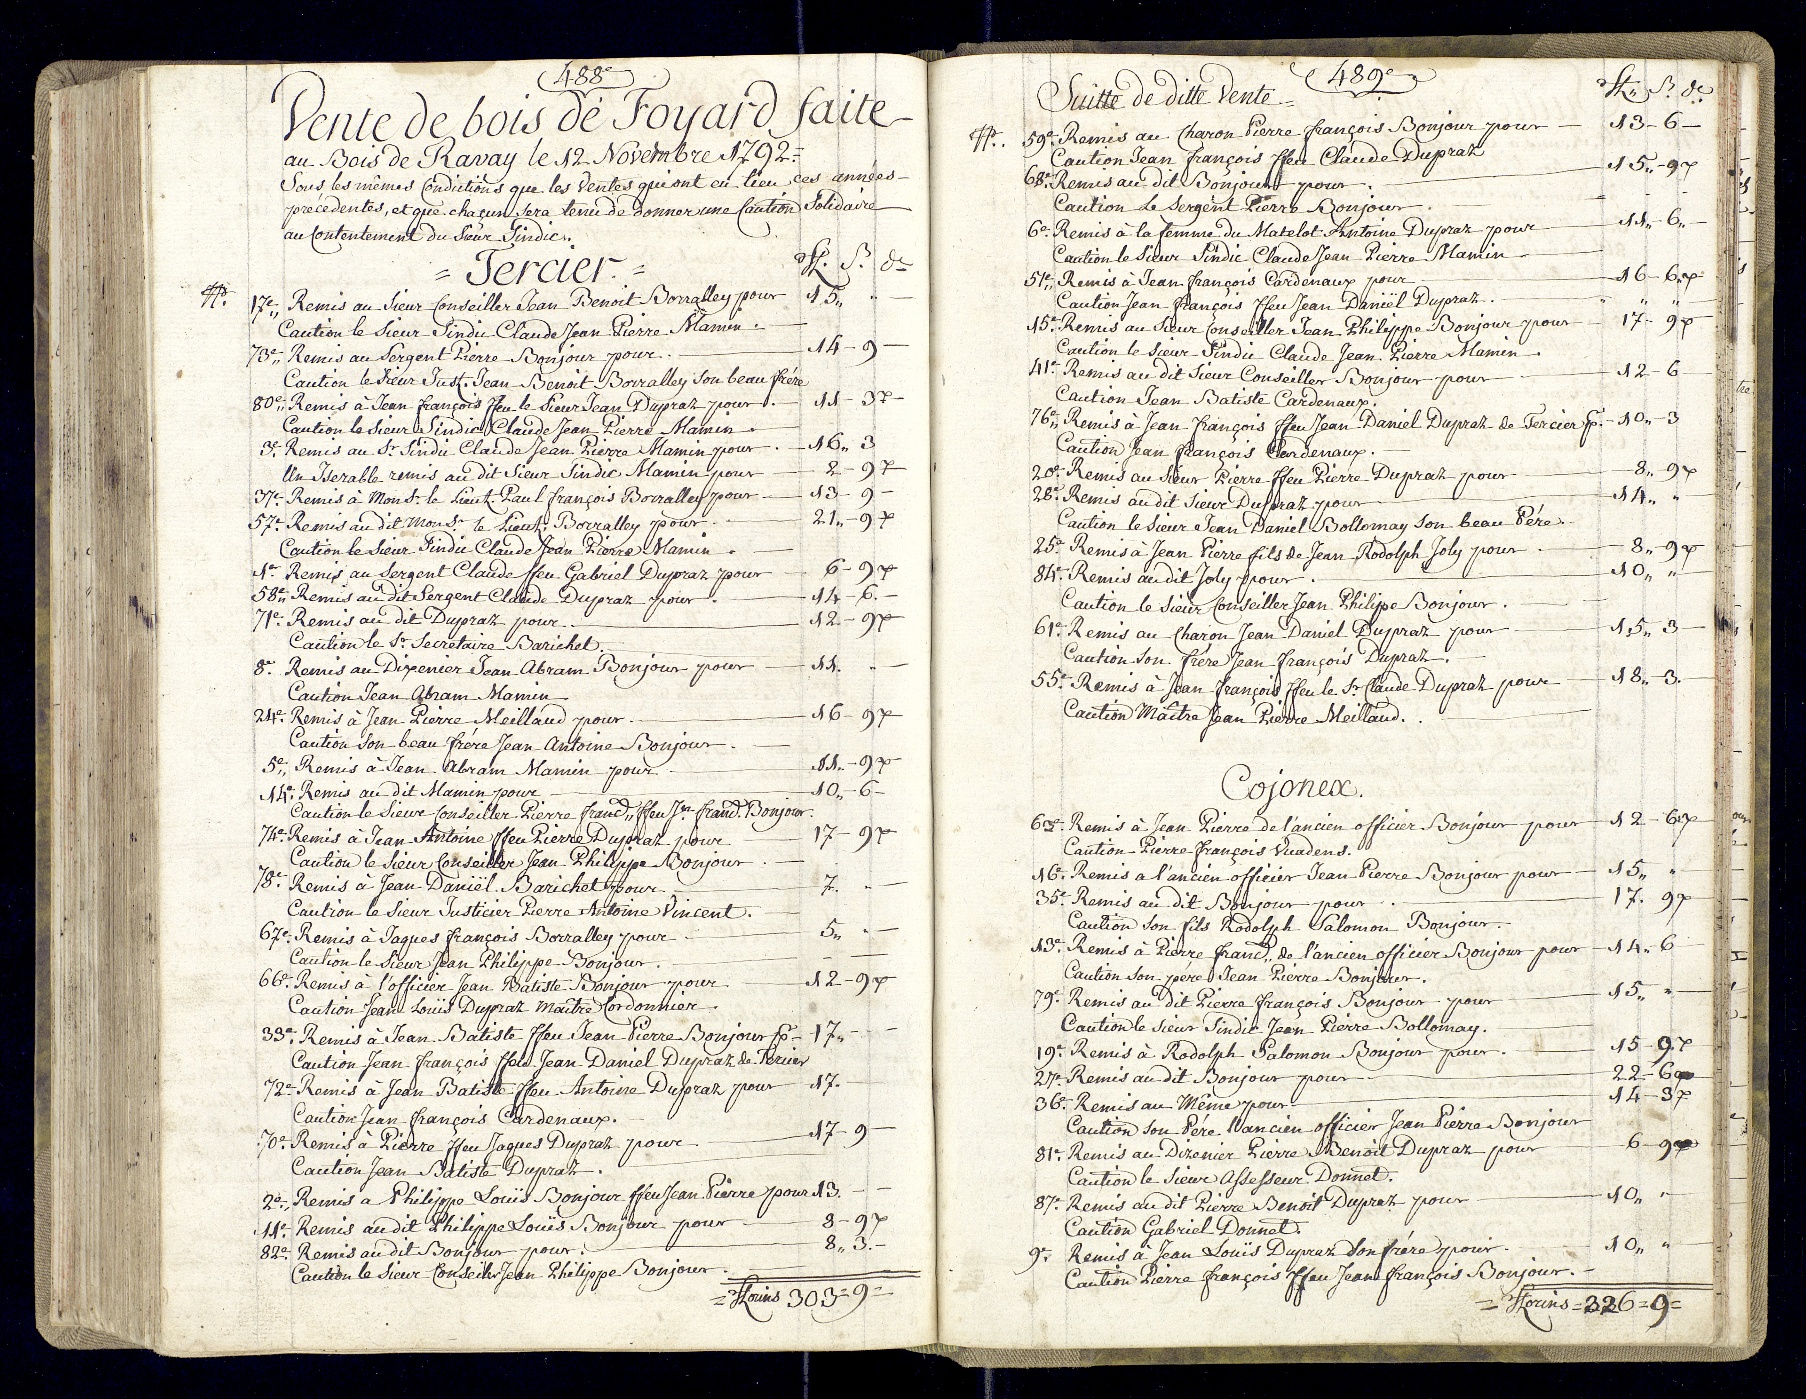 488e
Vente de bois de Foyard faite
au Bois de Ravay le 12 Novembre 1792.=
Sous les mêmes Condictions que les Ventes qui ont eu lieu ces années
précédentes, et que chacun sera tenu de donner une Caution Solidaire
au Contentement du Sieur Sindic.
= Tercier. = fl. S. de
17e Remis au Sieur Conseiller Jean Benoit Borralley pour 15,, "
Caution le Sieur Sindic Claude Jean Pierre Mamin.
73e Remis au Sergent Pierre Bonjour pour 14-9
Caution le Sieur Just. Jean Benoit Borralley son beau frére
80e Remis à Jean françois ffeu le Sieur Jean Dupraz pour 11-3
Caution le Sieur Sindic Claude Jean Pierre Mamin
3e Remis au Sr Sindic Claude Jean Pierre Mamin pour 16,, 3
Un Iserable remis au dit Sieur Sindic Mamin pour 2-9
37e Remis à Monsr. le Lieut. Paul françois Borralley pour 13-9
57e Remis au dit Monsr le Lieut. Borralley pour 21,,-9
Caution le Sieur Sindic Claude Jean Pierre Mamin
1e Remis au Sergent Claude ffeu Gabriel Dupraz pour 6-9
58e Remis au dit Sergent Claude Dupraz pour 14-6
71e Remis au dit Dupraz pour 12-9
Caution le Sr Secretaire Barichet.
8e Remis au Dixenier Jean Abram Bonjour pour 11. "
Caution Jean Abram Mamin
24e Remis à Jean Pierre Meillaud pour 16-9
Caution son beau frére Jean Antoine Bonjour.
5e Remis à Jean Abram Mamin pour 11-9
14e Remis au dit Mamin pour 10,,-6
Caution le Sieur Conseiller Pierre francs. ffeu Jn francs. Bonjour.
74e Remis à Jean Antoine ffeu Pierre Dupraz pour 17-9
Caution le Sieur Conseiller Jean Philippe Bonjour
78e Remis à Jean Daniël Barichet pour 7. "
Caution le Sieur Justicier Pierre Antoine Vincent.
67e Remis à Jaques françois Borralley pour 5,, "
Caution le Sieur Jean Philippe Bonjour.
66e Remis à l'officier Jean Batiste Bonjour pour 12-9
Caution Jean Louïs Dupraz Maître Cordonnier.
33e Remis à Jean Batiste ffeu Jean Pierre Bonjour pr. 17,,
Caution Jean françois ffeu Jean Daniel Dupraz de Tercier
72e Remis à Jean Batiste ffeu Antoine Dupraz pour 17.
Caution Jean françois Cardenaux.
70e Remis à Pierre ffeu Jaques Dupraz pour 17-9
Caution Jean Batiste Dupraz.
2e Remis a Philippe Louïs Bonjour ffeu Jean Pierre pour 13.
11e Remis au dit Philippe Louïs Bonjour pour 8-9
82e Remis au dit Bonjour pour 8,, 3.
Caution le Sieur Conseiller Jean Philippe Bonjour.
= Florins 303=9=
489e
Suitte de ditte Vente = fl. S. de
59e Remis au Charon Pierre françois Bonjour pour 13-6
Caution Jean françois ffeu Claude Dupraz
68e Remis au dit Bonjour pour 15,,-9
Caution Le Sergent Pierre Bonjour.
6e Remis à la femme du Matelot Antoine Dupraz pour 11,,-6,,
Caution le Sieur Sindic Claude Jean Pierre Mamin
51e Remis à Jean françois Cardenaux pour 16-6
Caution Jean françois ffeu Jean Daniël Dupraz. " " "
15e Remis au Sieur Conseiller Jean Philippe Bonjour pour 17-9
Caution le Sieur Sindic Claude Jean Pierre Mamin
41e Remis au dit Sieur Conseiller Bonjour pour 12-6
Caution Jean Batiste Cardenaux.
76e Remis à Jean françois ffeu Jean Daniel Dupraz de Tercier pr. 10,,-3
Caution Jean françois Cardenaux.
20e Remis au Sieur Pierre ffeu Pierre Dupraz pour 8,, 9
28e Remis au dit Sieur Dupraz pour 14,, "
Caution le Sieur Jean Daniel Bollomay son beau Pére.
25e Remis à Jean Pierre fils de Jean Rodolph Joly pour 8,,-9
84e Remis au dit Joly pour 10,, "
Caution le Sieur Conseiller Jean Philipe Bonjour.
61e Remis au Charon Jean Daniel Dupraz pour 15,, 3
Caution son frére Jean françois Dupraz.
55e Remis à Jean françois ffeu le Sr Claude Dupraz pour 18,,-3.
Caution Maître Jean Pierre Meillaud.
Cojonex.
63e Remis à Jean Pierre de l'ancien officier Bonjour pour 12-6
Caution Pierre françois Vuadens.
16e Remis a l'ancien officier Jean Pierre Bonjour pour 15,, "
35e Remis au dit Bonjour pour 17. 9
Caution son fils Rodolph Salomon Bonjour.
13e Remis à Pierre francs. de l'ancien officier Bonjour pour 14,, 6
Caution son pére Jean Pierre Bonjour.
79e Remis au dit Pierre françois Bonjour pour 15,, "
Caution le Sieur Sindic Jean Pierre Bollomay.
19e Remis à Rodolph Salomon Bonjour pour 15-9
27e Remis au dit Bonjour pour 22-6
36e Remis au Même pour 14-3
Caution son Pére l'ancien officier Jean Pierre Bonjour
81e Remis au Dizenier Pierre Benoit Dupraz pour 6 9
Caution le Sieur Assesseur Donnet.
87e Remis au dit Pierre Benoit Dupraz pour 10,, "
Caution Gabriel Donnet.
9e Remis à Jean Louïs Dupraz son frére pour 10,, "
Caution Pierre françois ffeu Jean françois Bonjour.
= Florins = 326=9=